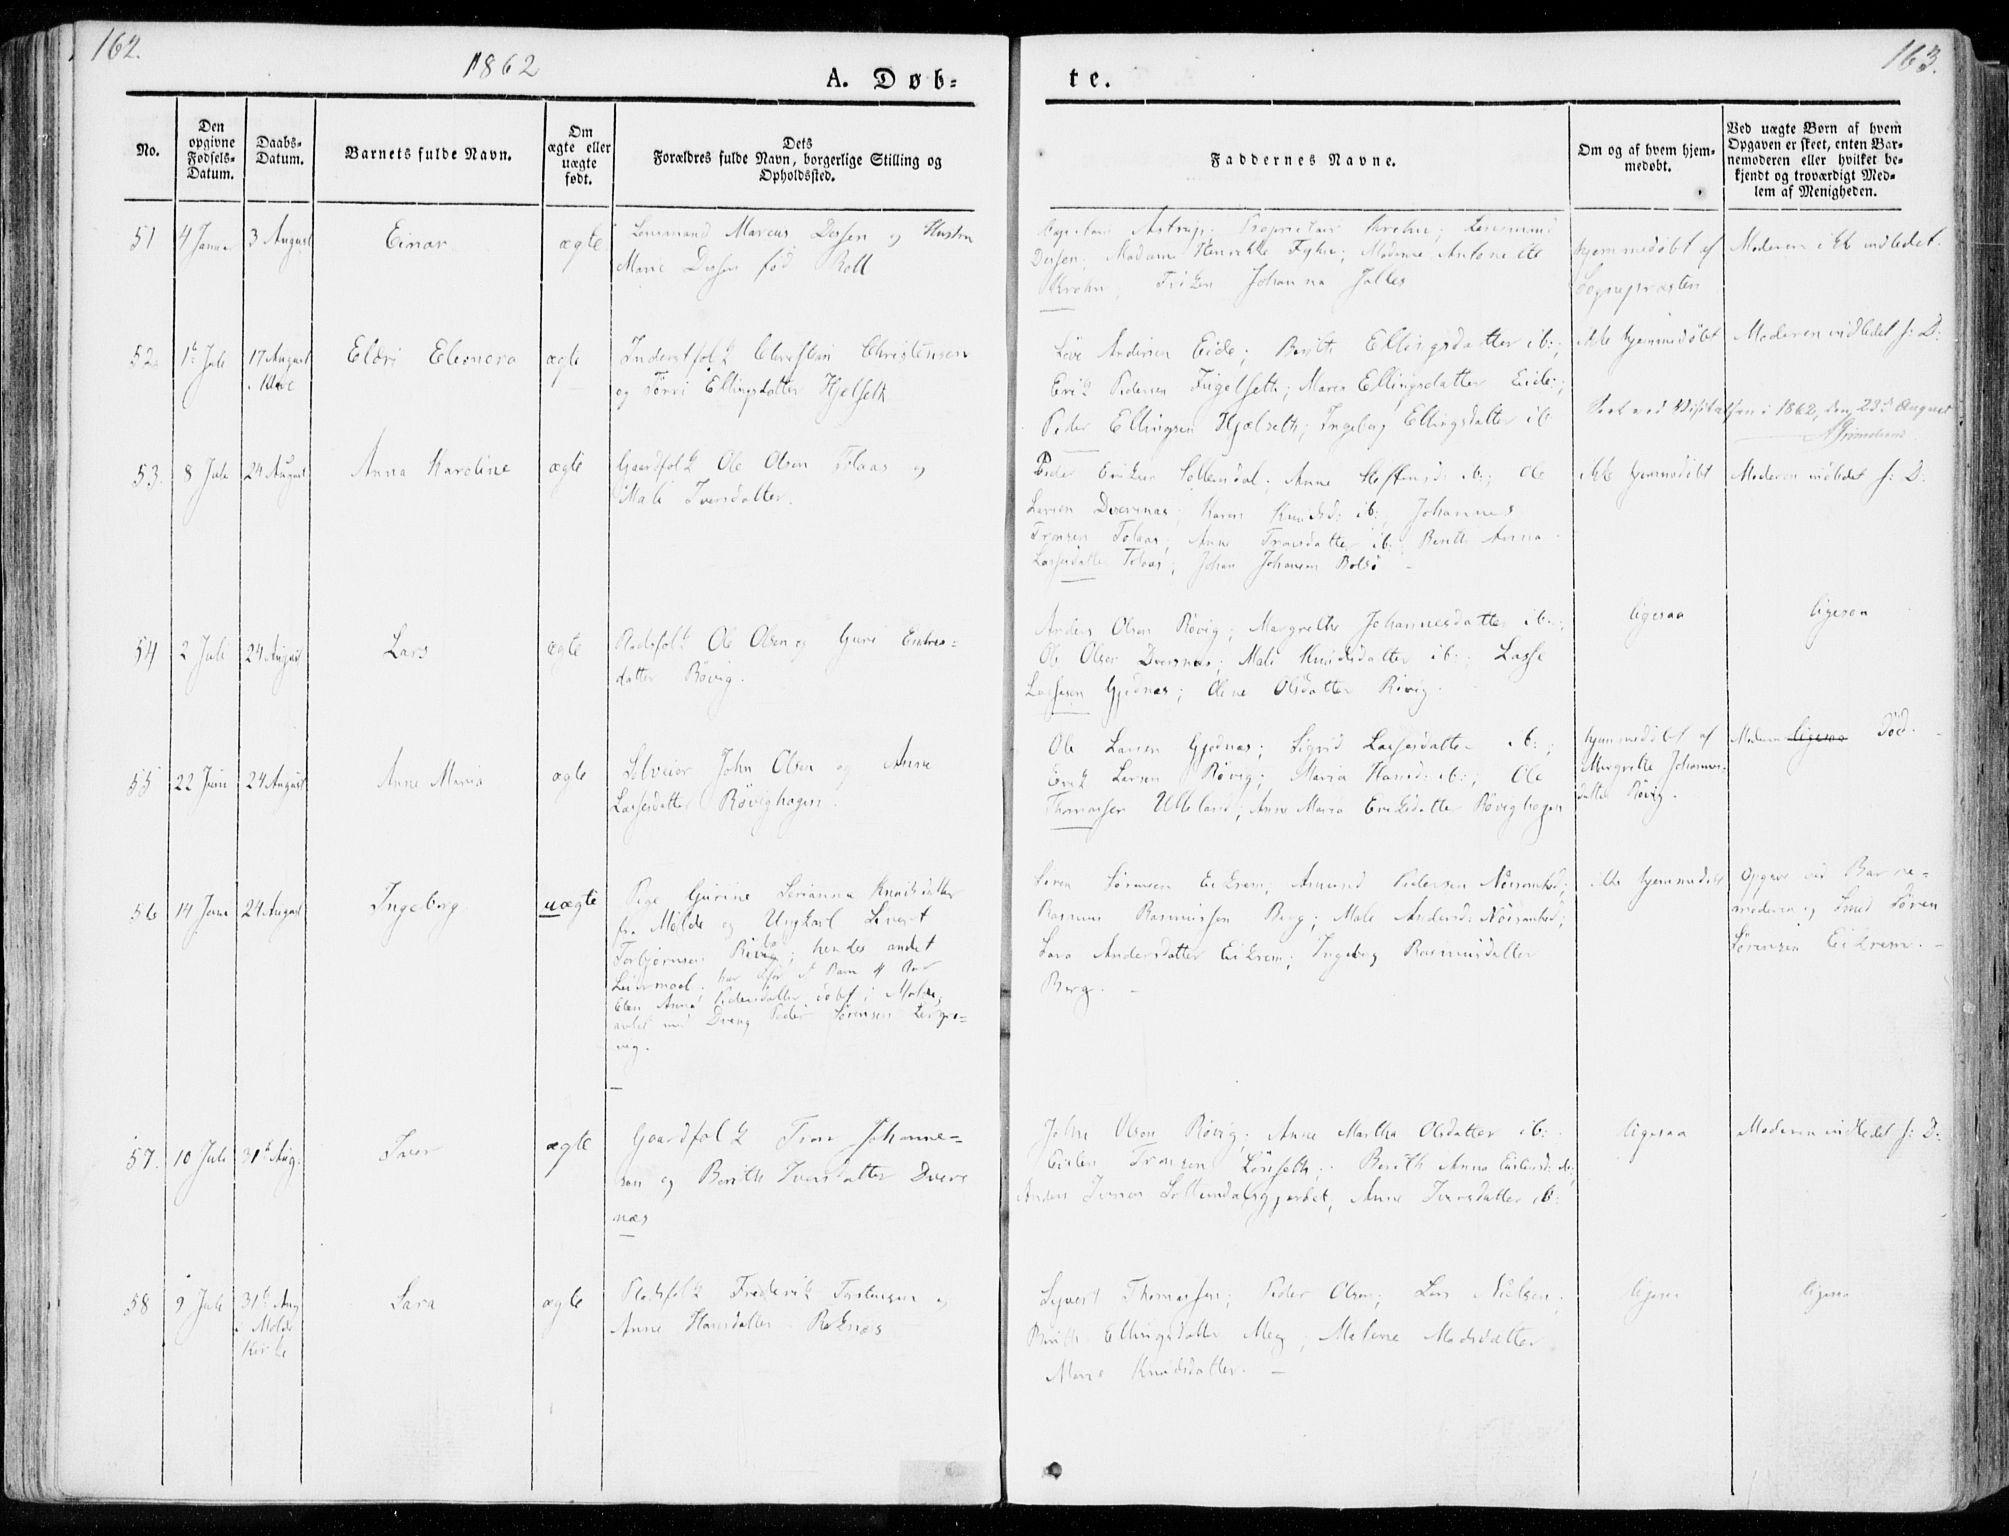 162.
1862
A. Døb=
No.
Den opgivne Fødsels-Datum.
Daabs-Datum.
Barnets fulde Navn.
Om ægte eller uægte født.
Dets Forældres fulde Navn, borgerlige Stilling og Opholdssted.
51 4 Januar 3 August Einar ægte Lensmand Marcus Dessen og Hustru
Marie Dessen fød Roll
52 1te Juli 17 August Eldri Eleonora ægte Inderstfolk Christian Christensen
i Kleve og Ellingsdatter Hjelseth
53. 8 Juli 24 August Anna Karoline ægte Gaardfolk Ole Olsen Tolaas og
Mali Iversdatter.
54 2 Juli 24 August Lars ægte Pladsfolk Ole Olsen og Guri Endres=
datter Røvig.
55 22 Juni 24 August Anne Maria ægte John Olsen og Anne
Lassesdatter Røvighagen.
56 14 Juni 24 August Ingeborg uægte Pige Gurine Serianna Knudsdatter
fra Molde og Ungkarl Sivert
Torbjørnsen hendes andet
Leiermaal. har før
Elen Anna Pedersdatter døbt i Molde,
avlet med Dreng Peder Sørensen
vig.
57. 10 Juli 31te Aug. Iver ægte Gaardfolk Tron Johanne=
sen og Berith Iversdatter Dvere
næs
58 9 Juli 31te Aug Lara ægte Pladsfolk Frederik Torstensen og
i Molde Anne Hansdatter Reknæs
Kirke
163.
te.
Faddernes Navne.
Om og af hvem hjem-medøbt.
Ved uægte Børn af hvem Opgaven er skeet, enten Bar-nemoderen eller hvilket be-kjendt og troværdigt Med-lem af Menigheden.
Astrup, Proprietair Krohn; Lensmand
Dessen; Madame Henrikke; Madame Antonette
Krohn, Frøken Johanna
hjemmedøbt af
Sognepræsten
Moderen ikke indledet.
Andersen Eide; Berith Ellingsdatter ib:;
Erik Pedersen; Maren Ellingsdatter Eide;
Peder Ellingsen Hjælseth; Ingeborg Ellingsdatter ib
ikke hjemmedøbt
Moderen indledet s: D:
Seet ved Visitatsen i 1862, den 23de August
Peder Eriksen Sollemdal; Anne ib:; Ole
Larsen Dverenæs; Karen Knudsd: ib:, Johannes
Tronsen Tolaas; Anne Tronsdatter ib: Berith Anna
Lassesdatter Tolaas; Johan Johansen Bolsø
ikke hjemmedøbt
Moderen indledet s: D:
Anders Olsen Røvig; Margrethe Johannesdatter ib:;
Ole Olsen Dverenæs; Mali Knudsdatter ib:; Lasse
Lassesen Gjednæs; Oline Olsdatter Røvig.
ligesaa
ligesaa
Ole Larsen Gjednæs; Sigrid Lassesdatter ib:;
Erik Larsen Røvig; Maria Hansd: ib:; Ole
Thomassen Ulleland; Anne Maria Eriksdatter Røvighagen
hjemmedøbt af
Margrethe Johannes-
datter Røvig.
Moderen ligesaa Død.
Søren Sørensen Eikrem; Amund Pedersen;
Rasmus Rasmussen Berg; Mali Andersd:;
Andersdatter Eikrem; Ingeborg Rasmusdatter
Berg.
ikke hjemmedøbt
Opgave ved Barne=
moderen og Smed Søren
Sørensen Eikrem.
John Olsen Røvig; Anne Martha Olsdatter ib:;
Eisten Tronsen; Berith Anna Eistensd: ib;
Anders Iversen, Anne Iversdatter ib:
ligesaa
Moderen indledet s: D:
Syvert Thomassen; Peder Olsen; Lars Nielsen;
Berith Ellingsdatter Meeg; Malene Madsdatter
Marie Knudsdatter.
ligesaa
ligesaa